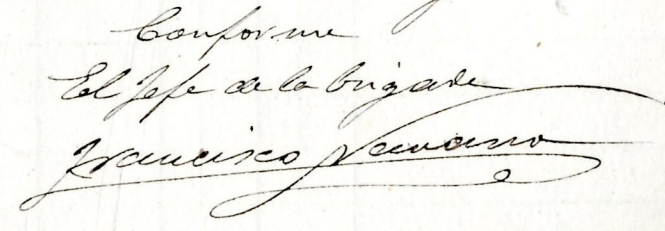 Conforme
El Jefe de la brigada
Francisco Navarro